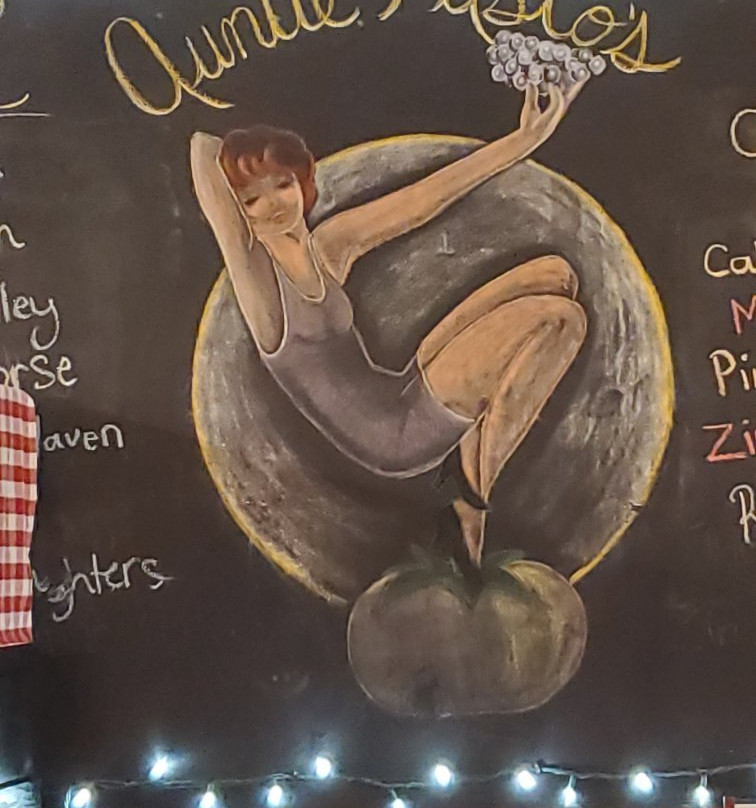 Auntie Pasto's
ley
orse
laven
ghters
Ca
M
Pi
Zi
R